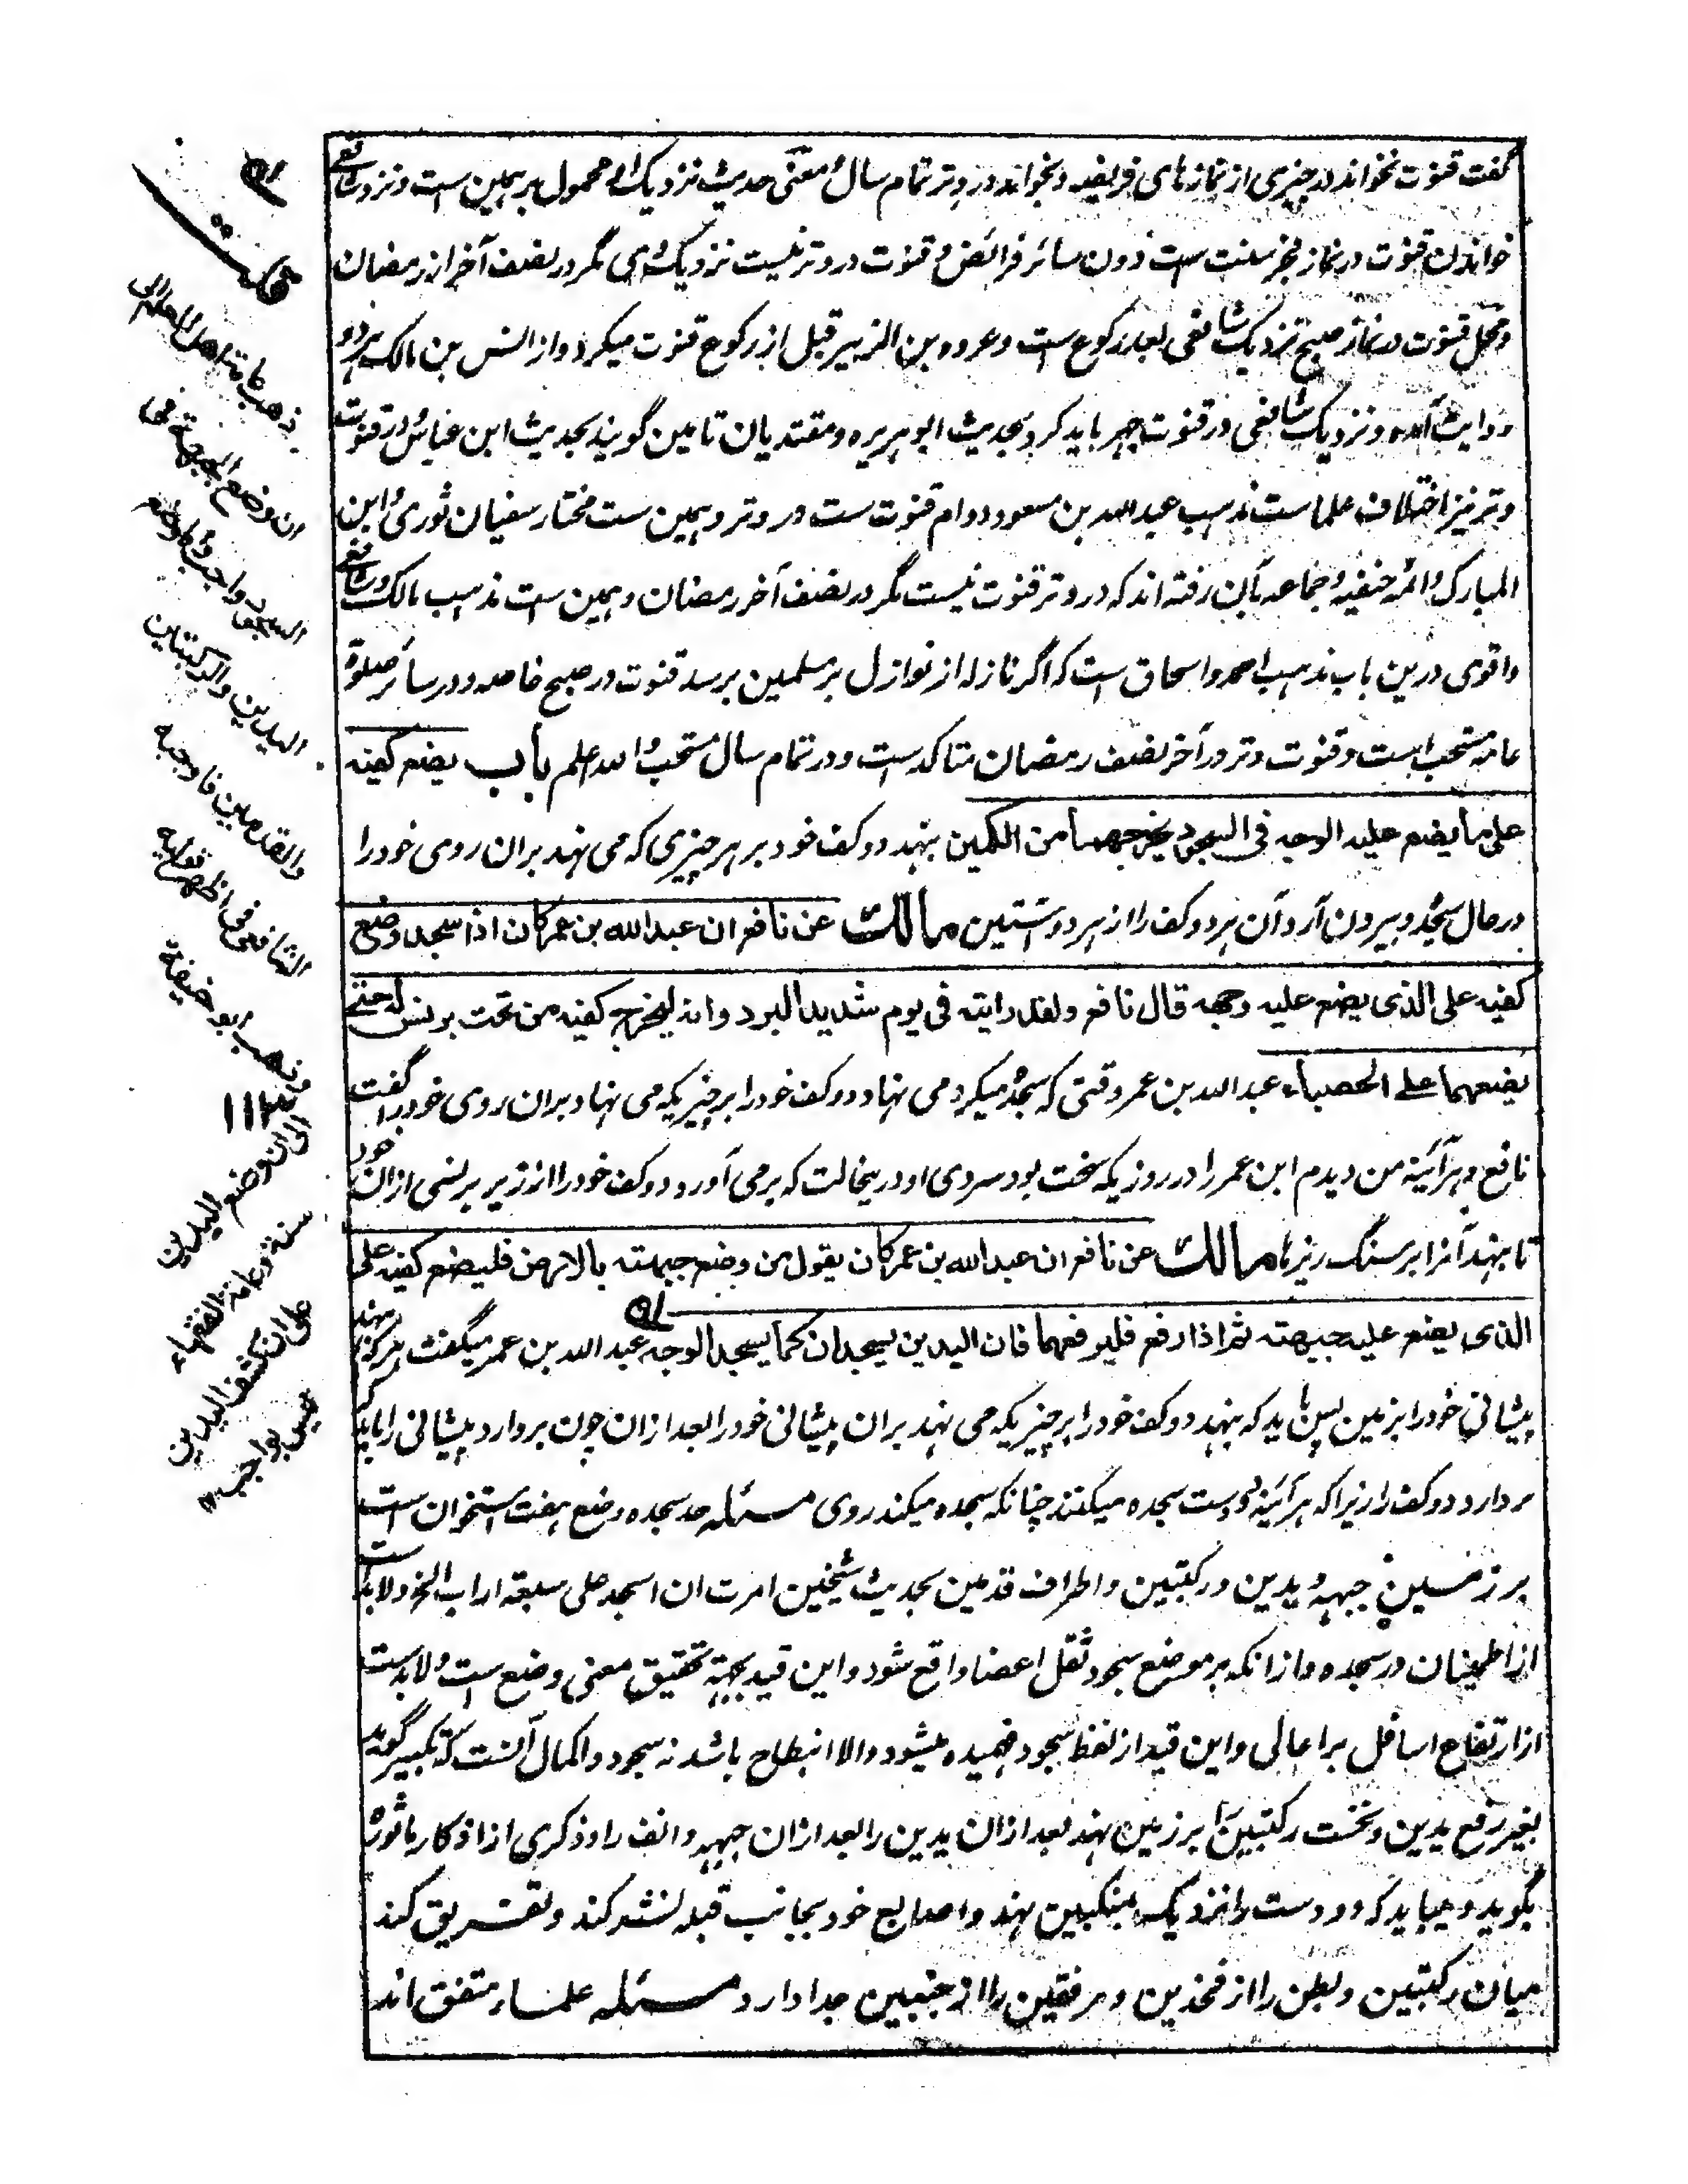 گفت قنوت نخواند در چیزی از نمازهای فریضه و بخواند در وتر تمام سال معنی حدیث نزدیک او محمول بر همین ست و نزد شافعی
خواندن قنوت در نماز فجر سنت ست دون سائر فرائض و قنوت در وتر نیست نزدیک وی مگر در نصف آخر از رمضان
و محل قنوت در نماز صبح نزدیک شافعی بعد رکوع ست و عروه بن الزبیر قبل از رکوع قنوت میکرد و از انس بن مالک هر دو
روایت آمده و نزدیک شافعی در قنوت جهر باید کرد بحدیث ابو هریره و مقتدیان تامین گویند بحدیث ابن عباس و در قنوت
وتر نیز اختلاف علماست مذهب عبد الله بن مسعود دوام قنوت ست در وتر و همین ست مختار سفیان ثوری و ابن
المبارک و ائمه حنفیه و جماعه بآن رفته اند که در وتر قنوت نیست مگر در نصف آخر رمضان و همین ست مذهب مالک و شافعی
و اقوی درین باب مذهب احمد و اسحاق ست که اگر نازله از نوازل بر مسلمین برسد قنوت در صبح خاصه و در سائر صلوة
عامه مستحب است و قنوت وتر در آخر نصف رمضان متاکد ست و در تمام سال مستحب و الله اعلم باب یضع کفیه
علی ما یضع علیه الوجه فی السجود و یخرجهما من الکمین بنهد دو کف خود بر هر چیزی که می نهد بران روی خود را
در حال سجده و بیرون آرد آن هر دو کف را از هر دو آستین مالک عن نافع ان عبد الله بن عمر کان اذا سجد وضع
کفیه علی الذی یضع علیه وجهه قال نافع ولقد رایته فی یوم شدید البرد وانه لیخرج کفیه من تحت برنس له حتی
یضعهما علی الحصباء عبد الله بن عمر وقتی که سجده میکرد می نهاد دو کف خود را بر چیزیکه می نهاد بران روی خود را گفت
نافع و هر آئینه من دیدم ابن عمر را در روزیکه سخت بود سردی او در ینحالت که برمی آورد دو کف خود را از زیر برنسی ازان خود
تا بنهد آنرا بر سنگ ریزها مالک عن نافع ان عبد الله بن عمر کان یقول من وضع جبهته بالارض فلیضع کفیه علی
الذی یضع علیه جبهته ثم اذا رفع فلیرفعهما فان الیدین یسجدان کما یسجد الوجه عبد الله بن عمر میگفت هر که بنهد
پیشانی خود را بزمین پس باید که بنهد دو کف خود را بر چیزیکه می نهد بران پیشانی خود را بعد ازان چون بردارد پیشانی را باید که
بردارد دو کف را زیرا که هر آئینه دو دست سجده میکنند چنانکه سجده میکند روی مسئله حد سجده وضع هفت استخوان ست
بر زمین جبهه و یدین و رکبتین و اطراف قدمین بحدیث شیخین امرت ان اسجد علی سبعة اراب الخ و لابد ست
از اطمینان در سجده و از آنکه بر موضع سجود ثقل اعضا واقع شود و این قید بجهة تحقیق معنی وضع است و لابد ست
از ارتفاع اسافل بر اعالی و این قید از لفظ سجود فهمیده میشود والا انبطاح باشد نه سجود و اکمال آنست که تکبیر گوید
بغیر رفع یدین و نخست رکبتین را بر زمین بنهد بعد ازان یدین را بعد ازان جبهه و انف را و ذکری از اذکار ماثوره
بگوید و میباید که دو دست را نزدیک منکبین نهد و اصابع خود بجانب قبله نشر کند و تفریق کند
میان رکبتین و بطن را از فخذین و مرفقین را از جنبین جدا دارد مسئله علماء متفق اند
ذهب عامة اهل العلم الی
ان وضع الجبهة فی
السجود واجب و اما وضع
الیدین والرکبتین
والقدمین فاوجبه
الشافعی فی اظهر قولیه
وذهب ابو حنیفة
۱۱۲
الی ان وضع الیدین
سنة وعامة الفقهاء
علی ان کشف الیدین
لیس بواجب